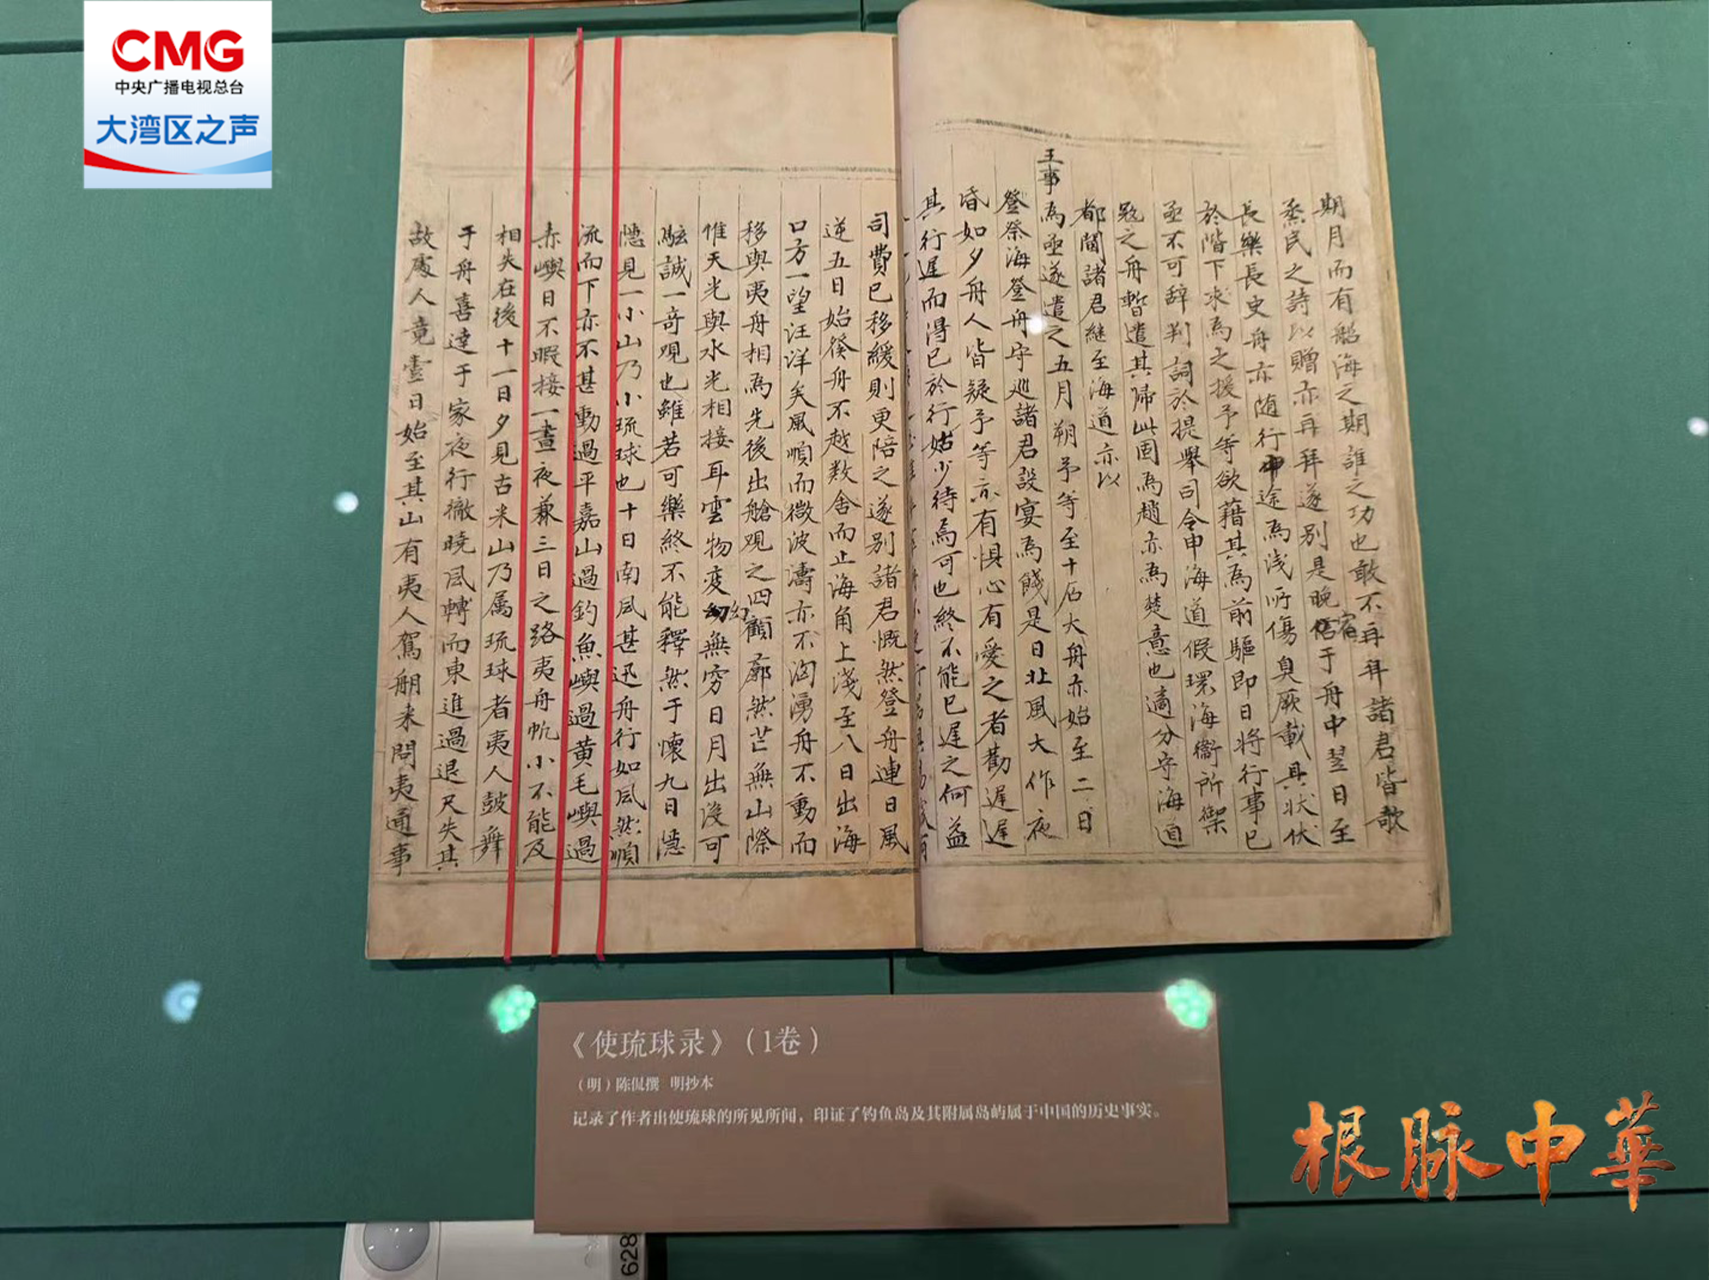 CMG
中央广播电视总台
大湾区之声
期月而有船海之期誰之功也敢不再拜諸君皆歌
烝民之詩以贈亦再拜遂別是晚宿于舟中翌日至
長樂長史舟亦随行中途為浅所傷臭厥載具状伏
於階下求為之援予等欲藉其為前驅即日将行事已
亟不可辞判詞於提舉司令申海道假環海衞所禦
冦之舟暫遣其歸此固為趙亦為楚意也適分守海道
都閫諸君継至海道亦以
王事為亟遂遣之五月朔予等至十石大舟亦始至二日
登祭海登舟守巡諸君設宴為餞是日北風大作夜
昏如夕舟人皆疑予等亦有惧心有愛之者勸遲遲
其行遲而得已於行姑少待焉可也終不能已遲之何益
司費已移緩則更陪之遂别諸君慨然登舟連日風
逆五日始發舟不越数舎而止海角上淺至八日出海
口方一望汪洋矣風順而微波濤亦不洶湧舟不動而
移與夷舟相為先後出艙观之四顧廓然茫無山際
惟天光與水光相接耳雲物变幻無窮日月出没可
駭誠一奇观也雖若可樂終不能釋然于懷九日隱
隱見一小山乃小琉球也十日南風甚迅舟行如風然順
流而下亦不甚動過平嘉山過釣魚嶼過黄毛嶼過
赤嶼目不暇接一晝夜兼三日之路夷舟帆小不能及
相失在後十一日夕見古米山乃属琉球者夷人鼓舞
于舟喜達于家夜行徹曉風轉而東進過退尺失其
故處人竟壹日始至其山有夷人駕船来問夷通事
《使琉球录》（1卷）
（明）陈侃撰 明抄本
记录了作者出使琉球的所见所闻，印证了钓鱼岛及其附属岛屿属于中国的历史事实。
根脉中華
628